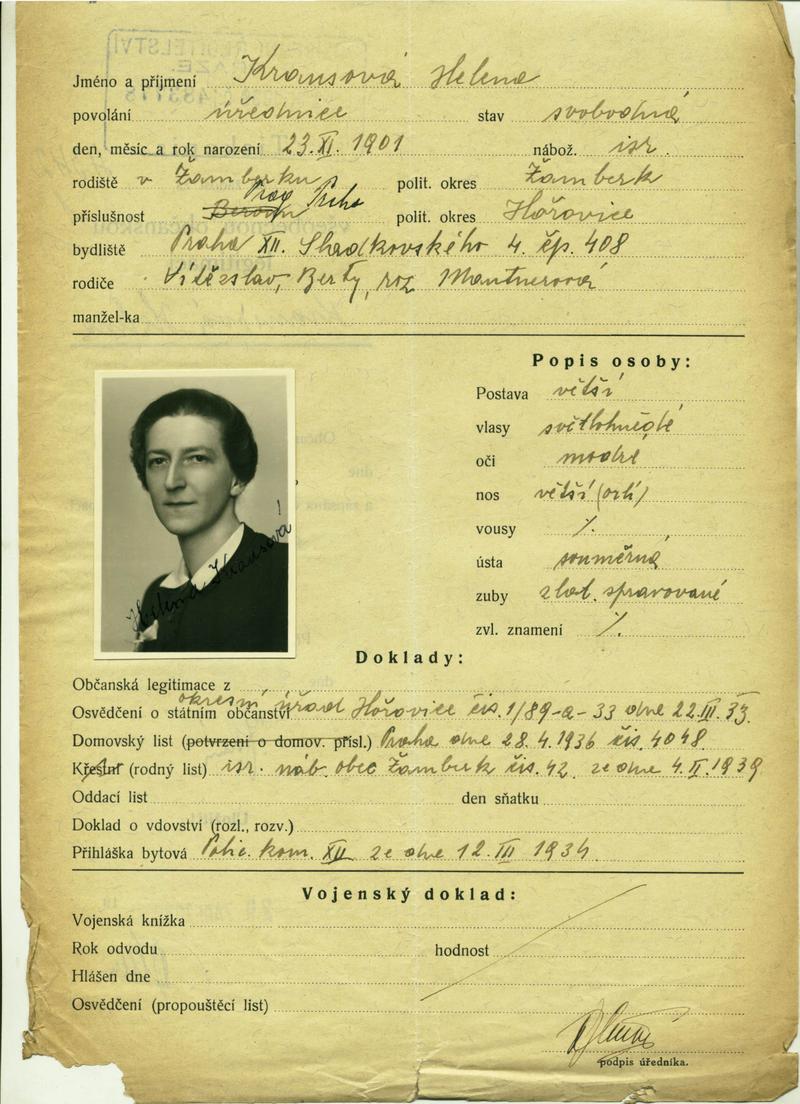 Jméno a příjmení Krausová Helena
povolání úřednice stav svobodná
den, měsíc a rok narození 23. XI. 1901 nábož. isr.
rodiště v Žamberku polit. okres Žamberk
příslušnost Beroun Prag Praha polit. okres Hořovice
bydliště Praha XII. Sladkovského 4. čp. 408
rodiče Vítězslav, Berty, roz Mautnerová
manžel-ka
Popis osoby:
Postava větší
vlasy světlohnědé
oči modré
nos větší (orlí)
vousy /.
ústa souměrná
zuby zlat. spravované
zvl. znamení /.
Helena Krausová
Doklady:
Občanská legitimace z
Osvědčení o státním občanství okresní úřad Hořovice čís. 1/89-a-33 dne 22.III.33.
Domovský list (potvrzení o domov. přísl.) Praha dne 28.4.1936 čís. 4048.
Křestní (rodný list) isr. náb. obec Žamberk čís. 42. ze dne 4.II.1939
Oddací list den sňatku
Doklad o vdovství (rozl., rozv.)
Přihláška bytová Polic. kom. XII ze dne 12. III 1934.
Vojenský doklad:
Vojenská knížka
Rok odvodu hodnost
Hlášen dne
Osvědčení (propouštěcí list)
podpis úředníka.